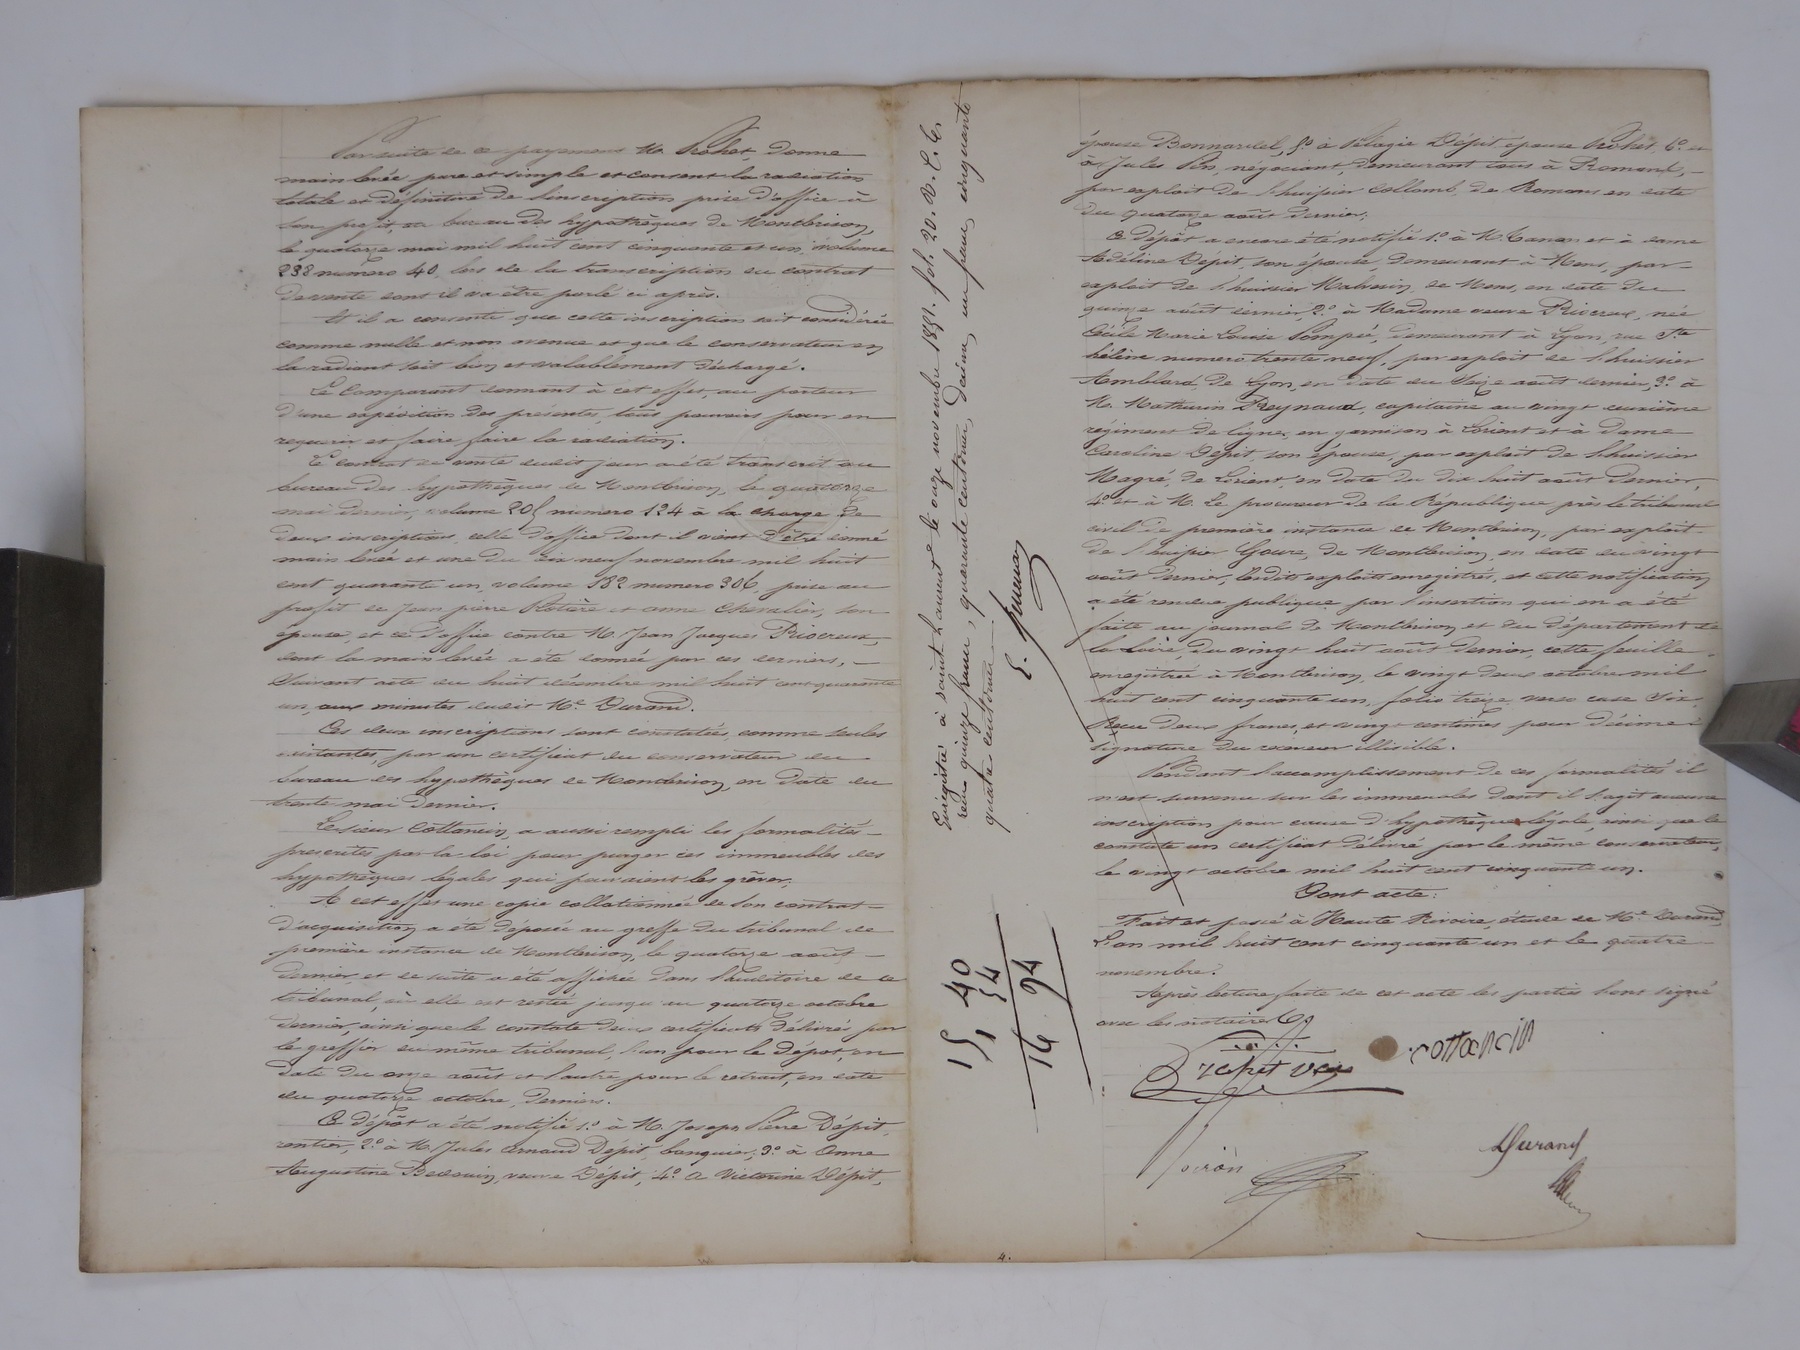 Par suite de ce payement M. Rohet, donne
main levée pure et simple et consent la radiation
totale et définitive de l'inscription prise d'office à
son profit, au bureau des hypothèques de Montbrison,
le quatorze mai mil huit cent cinquante et un, volume
232 numero 40, lors de la transcription du contrat
de vente dont il va être parlé ci après.
Et il a consenti que cette inscription soit considérée
comme nulle et non avenue et que le conservateur en
la radiant soit bien et valablement déchargé.
Le Comparant donnant à cet effet, au porteur
d'une expédition des présentes, tous pouvoirs pour en
requerir et faire faire la radiation.
Le contrat de vente dudit jour a été transcrit au
bureau des hypothèques de Montbrison, le quatorze
mai dernier, volume 205 numero 124 à la charge de
deux inscriptions, celle d'office dont il vient d'être donné
main levée et une du dix neuf novembre mil huit
cent quarante un, volume 182 numero 306, prise au
profit de Jean pierre Rotière et anne Chevalier, son
épouse, et ce d'office contre M. Jean Jacques Riocreux,
dont la main levée a été donnée par ces derniers,
suivant acte du huit décembre mil huit cent quarante
un, aux minutes dudit Me Durand.
Ces deux inscriptions sont constatées, comme seules
existantes, par un certificat du conservateur du
bureau des hypothèques de Montbrison, en date du
trente mai dernier.
Le sieur Cottancin, a aussi rempli les formalités
prescrites par la loi pour purger ces immeubles des
hypothèques légales qui pouvaient les grêver.
A cet effet une copie collationnée de son contrat
d'acquisition a été déposée au greffe du tribunal de
première instance de Montbrison, le quatorze août
dernier, et de suite a été affichée dans l'auditoire de ce
tribunal, où elle est restée jusqu'au quatorze octobre
dernier, ainsi que le constate deux certificats délivrés par
le greffier du même tribunal, l'un pour le dépot, en
date du onze août et l'autre pour le retrait, en date
du quatorze octobre, derniers.
Ce dépôt a été notifié 1.º à M. Joseph Pierre Dépit,
rentier, 2.º à M. Jules Arnaud Dépit, banquier, 3.º à Anne
Augustine veuve Dépit, 4.º a Victorine Dépit,
Enregistré à Saint Laurent le onze novembre 1851. fol. 20. R. C. 6.
reçu quinze francs, quarante centimes, décime, un franc, cinquante
quatre centimes
15, 40
1, 54
16. 94
épouse Bonnardel, 5.º à Pélagie Dépit, épouse Rohet, 6.º et
à Jules négociant, demeurant tous à Romans,
par exploit de l'huissier Collomb, de Romans en date
du quatorze août dernier.
Ce dépôt a encore été notifié 1.º à M. et à dame
Adéline Dépit, son épouse, demeurant à Mens, par
exploit de l'huissier de Mens, en date du
quinze août dernier, 2.º à Madame veuve Riocreux, née
Cécile Marie Louise Pompée, demeurant à Lyon, rue Ste
hélène numero trente neuf, par exploit de l'huissier
Amblard de Lyon, en date du seize août dernier, 3.º à
M. Mathurin Reynaud, capitaine au vingt
régiment de ligne, en garnison à Lorient et à Dame
Caroline Dépit, son épouse, par exploit de l'huissier
Magré, de Lorient, en date du dix huit août dernier,
4.º et à M. Le procureur de la République près le tribunal
civil de première instance de Montbrison, par exploit
de l'huissier Goure, de Montbrison, en date du vingt
août dernier, lesdits exploits enregistrés, et cette notification
a été rendue publique par l'insertion qui en a été
faite au journal de Montbrison et du département de
la Loire, du vingt huit août dernier, cette feuille
enregistrée à Montbrison, le vingt deux octobre mil
huit cent cinquante un, folio treize verso case six.
Reçu deux francs, et vingt centimes pour décime
signature du receveur illisible.
Pendant l'accomplissement de ces formalités il
n'est survenu sur les immeubles dont il s'agit aucune
inscription pour cause d'hypothèque légale, ainsi que le
constate un certificat délivré par le même conservateur,
le vingt octobre mil huit cent cinquante un.
Dont acte:
Fait et passé à Haute Rivoire, étude de Me Durand,
L'an mil huit cent cinquante un et le quatre
novembre.
Après lecture faite de cet acte les parties l'ont signé
avec les notaires
cottancin
Durand
4.